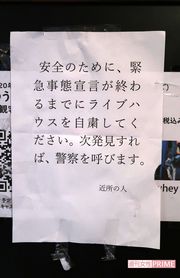 安全のために、緊
急事態宣言が終わ
るまでにライブハ
ウスを自粛してく
ださい。次発見すれ
ば、警察を呼びます。
近所の人
週刊女性PRIME